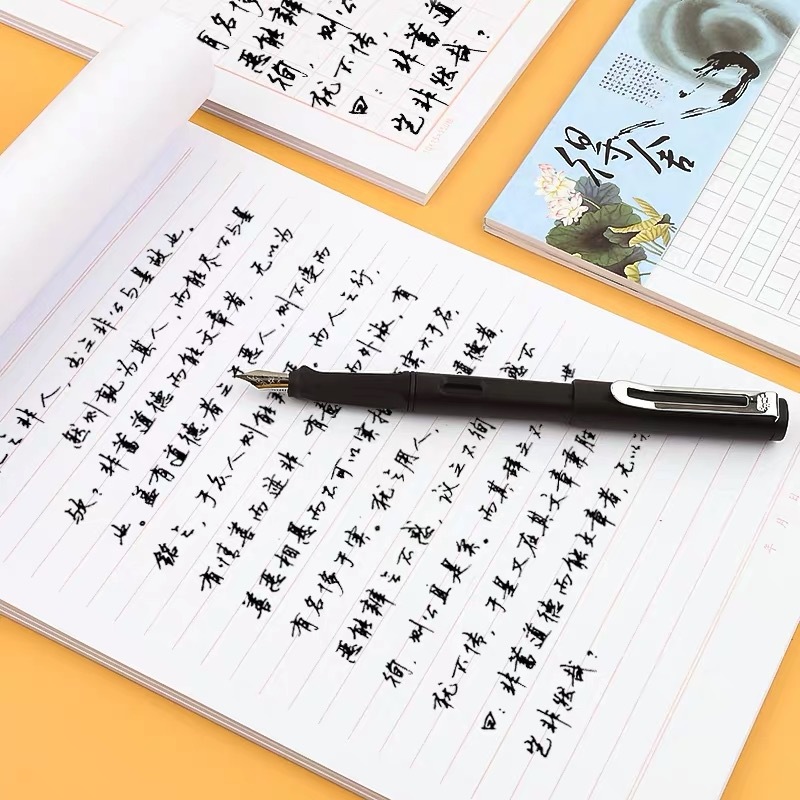 有名侈
恶能辨
徇，则公
犹不传，
曰：非蓄道
岂非然哉？
得舍
之非人，书之非公与是故也。
然则孰为其人，而能尽公与是
欤？非蓄道德而能文章者，无以为
也。盖有道德者之于恶人，则不受而
铭之，于众人则能辨。而人之行，
有情善而迹非，有而外淑，有
善恶相悬而不可以实指实大于名
有名侈于实。犹之用人，道德者，
恶能辨之不惑，议之不徇惑不
徇，则公且是矣。而其辞之不世
犹不传，于是又在其文章兼胜
曰：非蓄道德而能文章者，无以
岂非然哉？
年月日